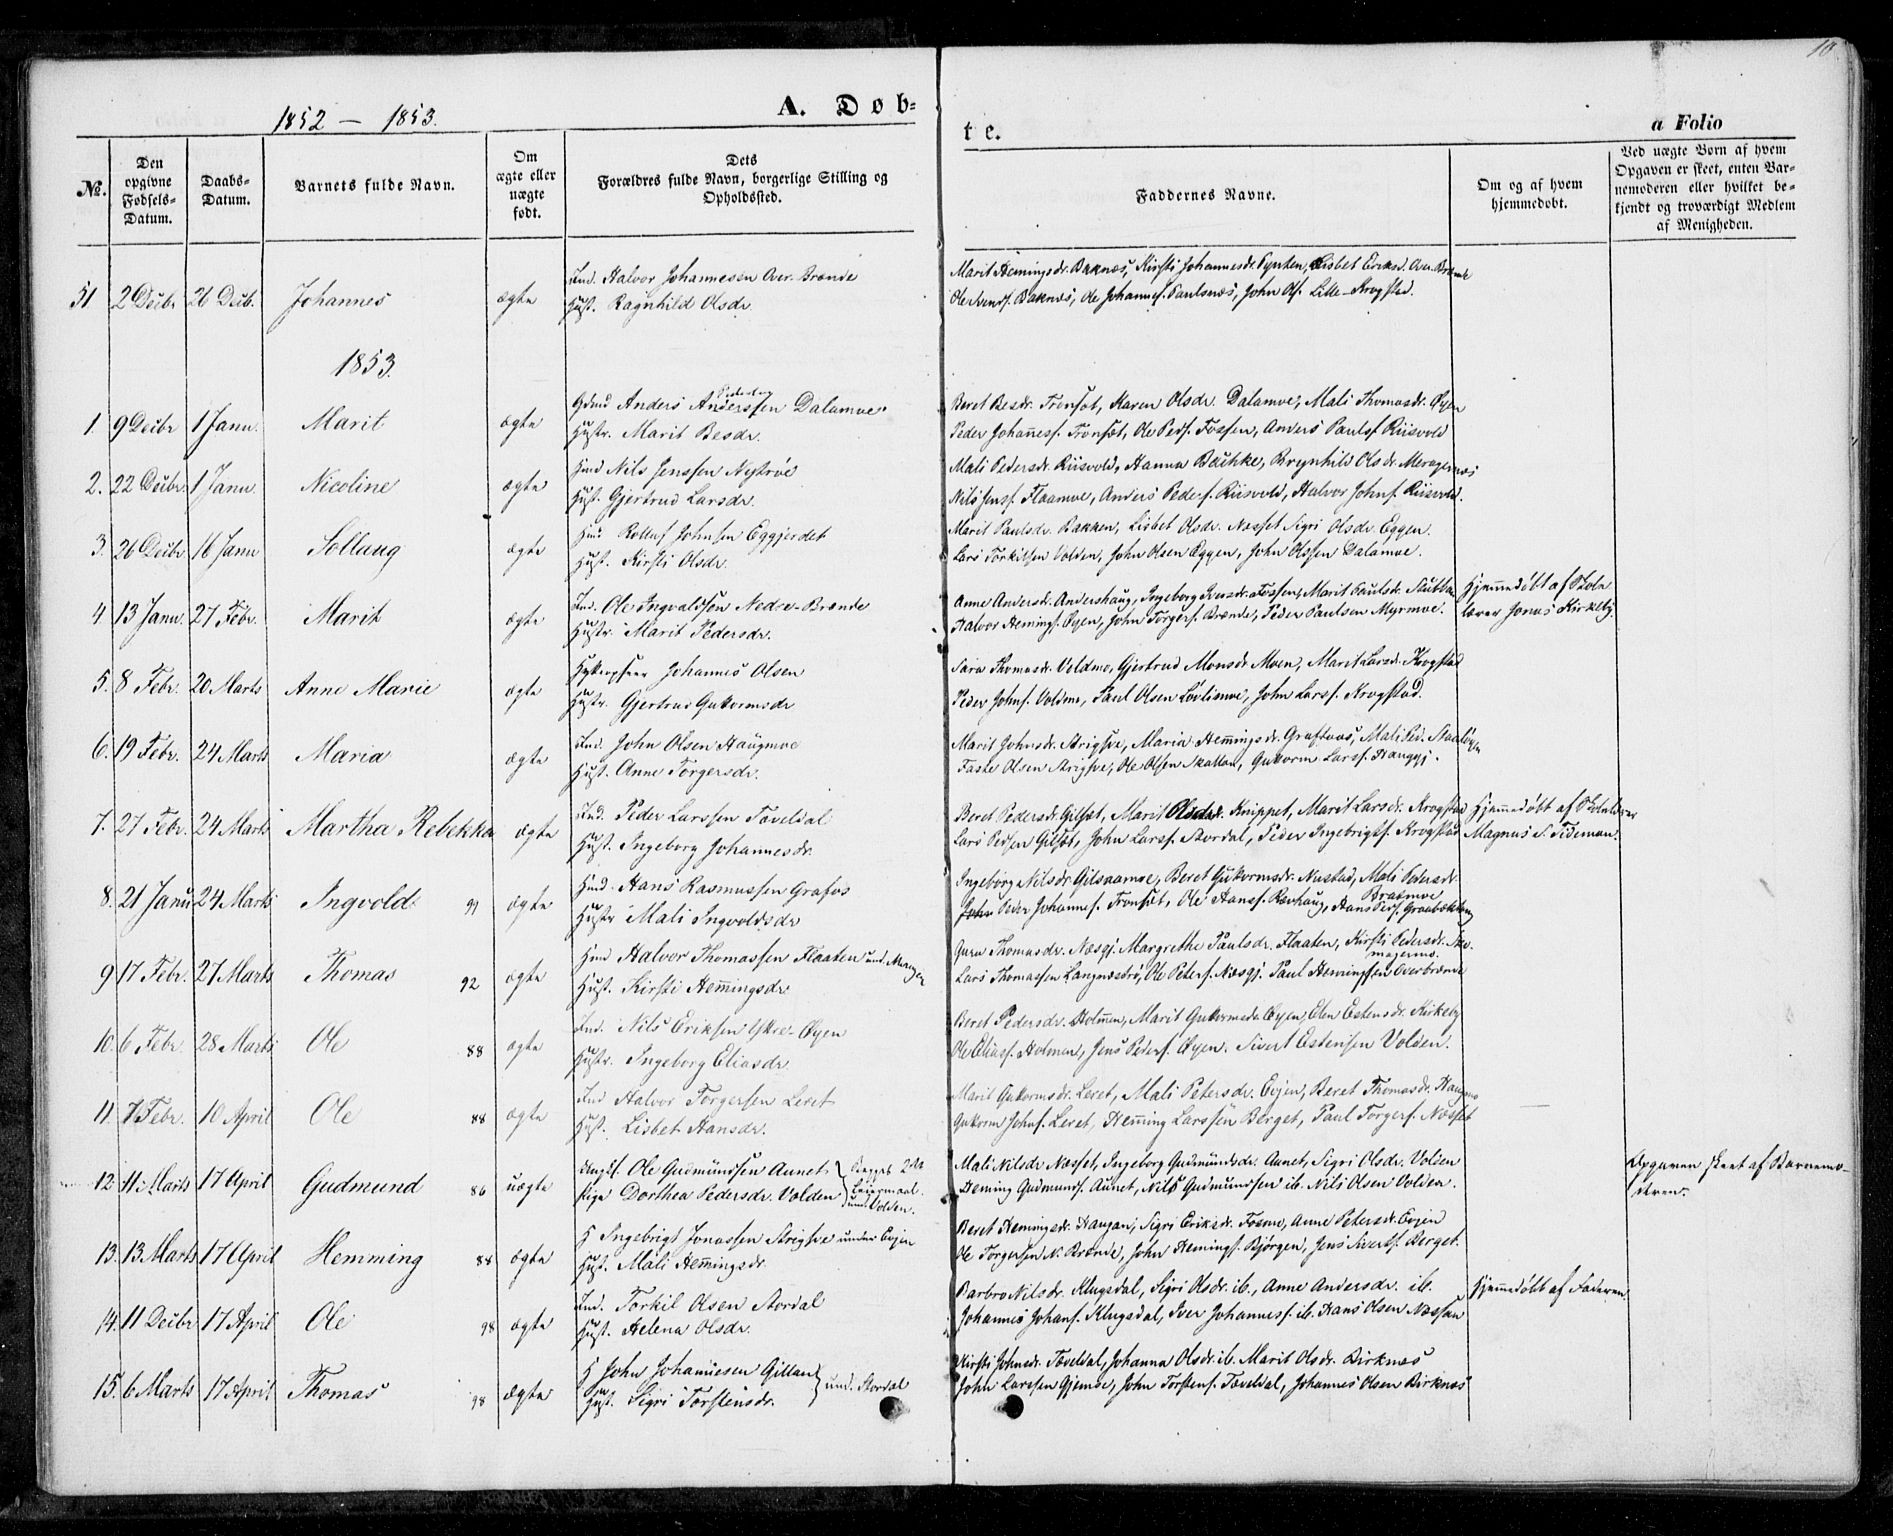 10
1852 – 1853.
A. Døb=
te.
a Folio
No.
Den opgivne Fødsels-Datum.
Daabs-Datum.
Barnets fulde Navn.
Om ægte eller uægte født.
Dets Forældres fulde Navn, borgerlige Stilling og Opholdssted.
Faddernes Navne.
Om og af hvem hjemmedøbt.
Ved uægte Børn af hvem Opgaven er skeet, enten Barnemoderen eller hvilket bekjendt og troværdigt Medlem af Menigheden.
51 2 Decbr 26 Decb. Johannes ægte Ind. Halvor Johannesen Over-Brænde
Hust. Ragnhild Olsdr.
Marit Hemingsdr. Baknæs, Kirsti Johannesdr. Pynten, Lisbet Eriksd. Over-Brænde
Ole Svends. Baknæs, Ole Johannes. Paulsnæs, John Ols. Lille-Krogstad.
1853.
1. 9 Decbr 1 Janu. Marit ægte Gdmd Anders Anderssen Pedersen Dalamoe
Hustr. Marit Besdr.
Beret Besdr. Fronsøt, Karen Olsdr. Dalamoe, Mali Thomasdr. Øyen
Peder Johanness. Fronsøt, Ole Peds. Fossen, Anders Pauls. Riisvold
2. 22 Decbr. 1 Janu. Nicoline ægte Hmd Nils Jenssen Nystrøe
Hust. Gjertrud Larsdr.
Mali Pedersdr. Riisvold, Hanna Bauhke, Brynhild Olsdr. Meragernæs
Nils Jenss. Flaamoe, Anders Peders. Riisvold, Halvor Johns. Riisvold.
3. 26 Decbr. 16 Janu Sollaug ægte Hmd Rolluf Johnsen Eggjerdet
Hust. Kirsti Olsdr.
Marit Paulsdr. Bakken, Lisbet Olsdr. Næsset Sigri Olsdr. Eggen.
Lars Torkilsen Volden, John Olsen Eggen, John Olssen Dalamoe.
4 13 Janu. 27 Febr. Marit ægte Ind. Ole Ingvaldsen Nedre-Brænde
Hustr. Marit Pedersdr.
Anne Andersdr. Andershaug, Ingeborg Iversdr. Fossen, Marit Paulsdr.
Halvor Hemings. Øyen, John Torgers. Brænde, Peder Paulsen Myrmoe.
Hjemmedøbt af Skole
lærer Jonas Kirkeby.
5. 8 Febr. 20 Marts Anne Marie ægte Johannes Olsen
Hustr. Gjertrud Gutormsdr
Sara Thomasdr. Voldmo, Gjertrud Monsdr Moen, Marit Larsdr. Krogstad
Peder Johns. Voldmo, Paul Olsen Løvlimoe, John Larss. Krogstad.
6. 19 Febr. 24 Marts Maria ægte Ind. John Olsen Haugmoe
Hust. Anne Torgersdr.
Marit Johnsdr. Arigsve, Maria Hemmingsdr. Graftaas, Mali Ped.
Faste Olsen Arigsve, Ole Olsen Skatlan, Gutorm Larss. Hauggj.
7. 27 Febr. 24 Marts Martha Rebekka ægte Ind. Peder Larssen Tøveldal
Hust. Ingeborg Johannesdr.
Beret Pedersdr. Gilsøt, Marit Olsdr. Knippet, Marit Larsdr. Krogstad
Lars Pedsen Gilsøt, John Larss. Stordal, Peder Ingebrigts. Krogstad
Hjemmedøbt af Skolelærer
Magnus S. Tideman.
8. 21 Janu 24 Marts Ingvold 91 ægte Hmd. Hans Rasmussen Grafos
Hustr Mali Ingvoldsdr
Ingebørg Nilsdr. Gilsaamoe, Beret Gutormsdr. Nustad, Mali Pedersdr Braamoe
John Peder Johannes. Fronsøt, Ole Hanss. Ravhaug, Hans Pers. Graabækhaug
9 17 Febr. 27 Marts Thomas 92 ægte Hmd Halvor Thomassen Flaaten und. Meragen
Hust. Kirsti Hemmingsdr.
Guru Thomasdr. Næsgj. Margrethe Paulsdr. Flaaten, Kirsti Pedersdr.
Lars Thomassen Langnæsbrø, Ole Peters. Næsgj. Paul Hemingssen Overbrænde
10. 6 Febr. 28 Marts Ole 88 ægte Ind. Nils Eriksen Yttre-Øyen
Hustr. Ingeborg Eliasdr.
Beret Pedersdr. Holmen, Marit Gutormsdr. Øyen, Elen Estensdr. Kirkeby
Ole Eliass. Holmen, Jens Peders. Øyen. Sivert Estensen Volden.
11. 7 Febr. 10 April Ole 88 ægte Ind Halvor Torgersen Leret
Hust. Lisbet Hansdr.
Marit Gutormsdr. Leret, Mali Petersdr. Evjen, Beret Thomasdr. Haugmo
Gutorm Johns. Leret, Hemming Larssen Berget, Paul Torgers. Næsset
12 11 Marts 17 April Gudmund 86 uægte Ungk. Ole Gudmundsen Aunet
Pige Dorthea Pedersdr. Volden
Begges 2det
Leiermaal.
und. Volden.
Mali Nilsdr Næsset, Ingeborg Gudmundsdr. Aunet, Sigri Olsdr. Volden
Heming Gudmunds. Aunet, Nils Gudmundsen ib. Nils Olsen Volden.
Opgaven skeet af Barnemo-
deren.
13. 13 Marts 17 April Hemming 88 ægte H Ingebrigt Jonassen Arigsve under Evjen
Hust. Mali Hemmingsdr.
Beret Hemingsdr. Haugan, Sigri Eriksdr. Fosmo, Anne Petersdr. Evjen
Ole Torgersen N. Brænde, John Hemings. Bjørgen, Jens Siverts. Berget.
14. 11 Decbr 17 April Ole 98 ægte Ind. Torkil Olsen Stordal
Hust. Helena Olsdr.
Barbro Nilsdr. Klugsdal, Sigri Olsdr. ib., Anne Andersdr. ib.
Johannes Johans. Klugsdal, Iver Johanness. ib. Hans Olsen Næssan
Hjemmedøbt af Faderen.
15. 6 Marts 17 April Thomas 98 ægte H John Johannesen Gillan
Hust. Sigri Torstensdr.
und. Stordal
Kirsti Johnsdr. Tøveldal, Johanna Olsdr. ib. Marit Olsdr. Birknæs
John Larssen Gjemoe, John Torstens. Tøveldal, Johannes Olsen Birknæs